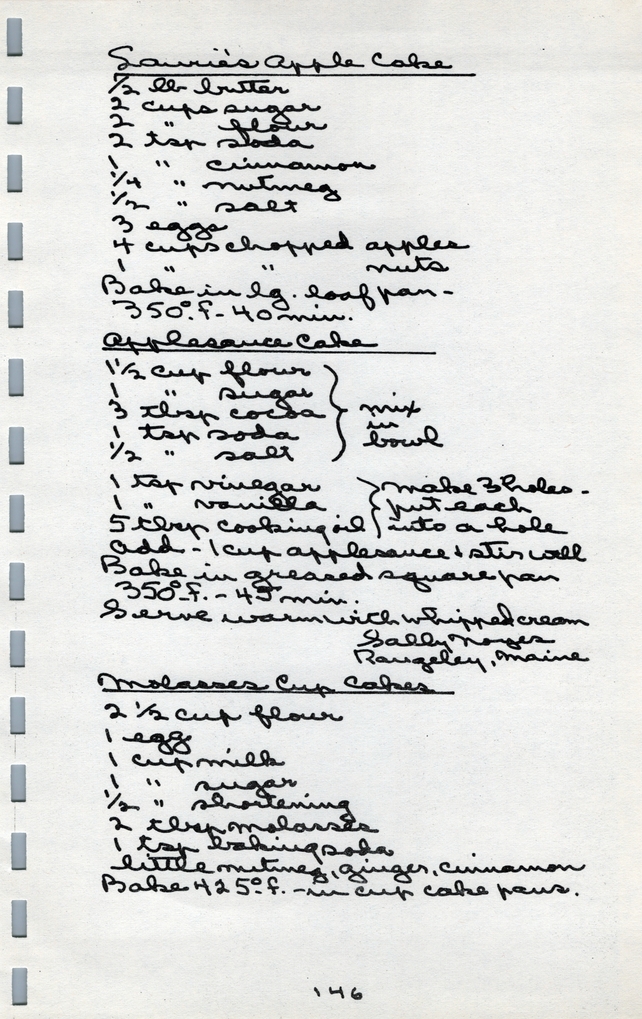 Laurie's Apple Cake
1/2 lb butter
2 cups sugar
2 " flour
2 tsp soda
1 " cinnamon
1/4 " nutmeg
1/2 " salt
3 eggs
4 cups chopped apples
1 " " nuts
Bake in lg. loaf pan -
350° f. - 40 min.
Applesauce Cake
1 1/2 cup flour
1 " sugar
3 tbsp cocoa
1 tsp soda
1/2 " salt
mix
in
bowl
1 tsp vinegar
1 " vanilla
5 tbsp cooking oil
make 3 holes -
put each
into a hole
add - 1 cup applesauce & stir well
Bake in greased square pan
350° f. - 45 min.
Serve warm with whipped cream
Sally Noyes
Rangeley, Maine
Molasses Cup Cakes
2 1/2 cup flour
1 egg
1 cup milk
1 " sugar
1/2 " shortening
2 tbsp molasses
1 tsp baking soda
little nutmeg, ginger, cinnamon
Bake 425° f. - in cup cake pans.
146